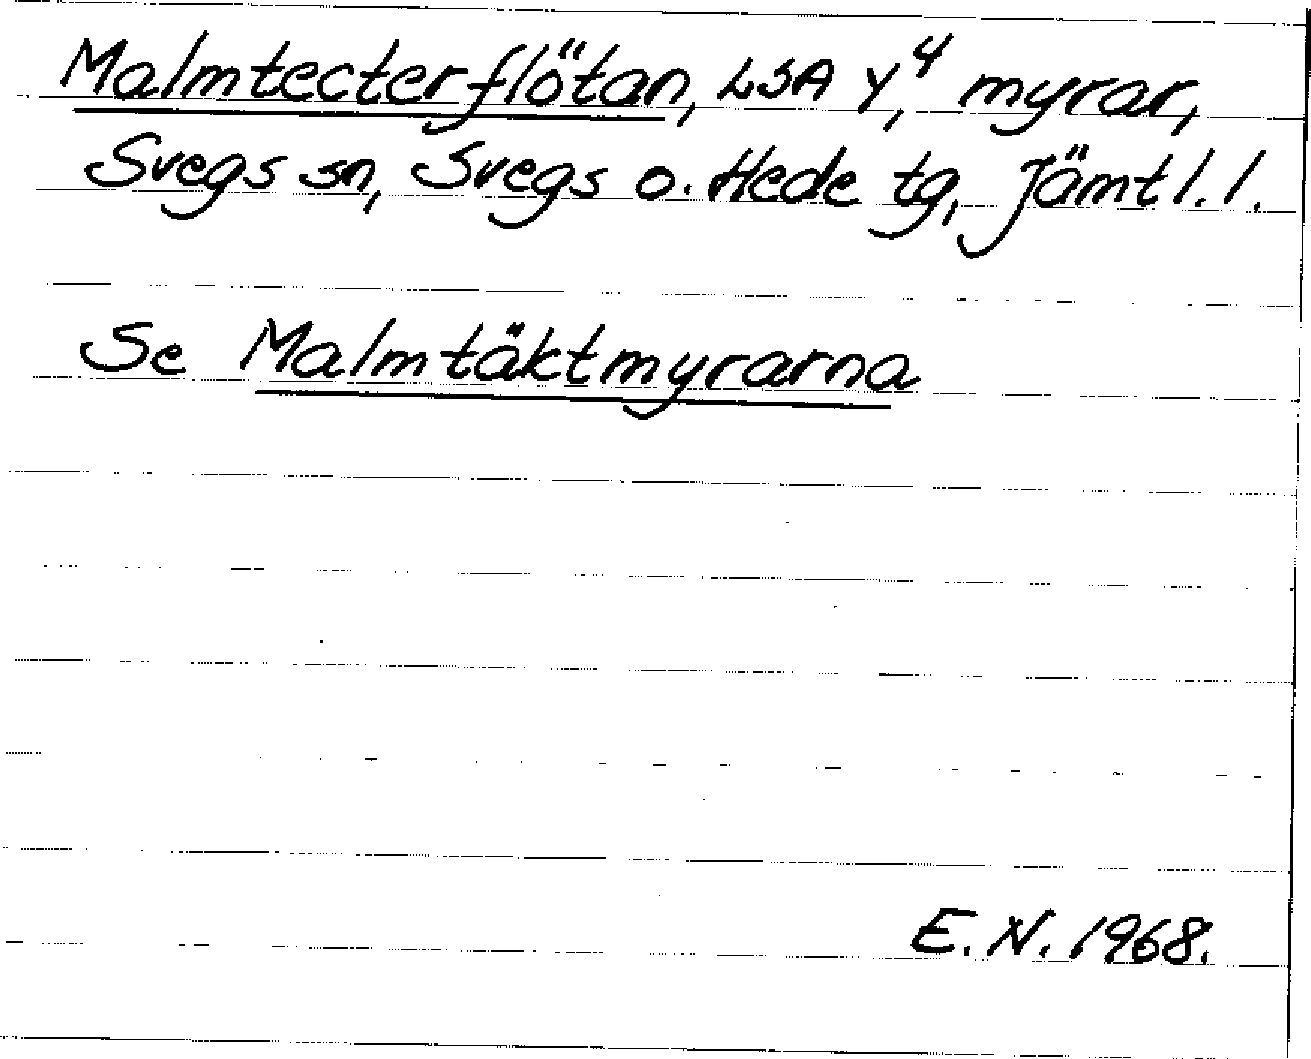 Malmtecterflötan, LSA Y⁴, myrar,
Svegs sn, Svegs o. Hede tg, Jämtl. l.
Se Malmtäktmyrarna
E. N. 1968.